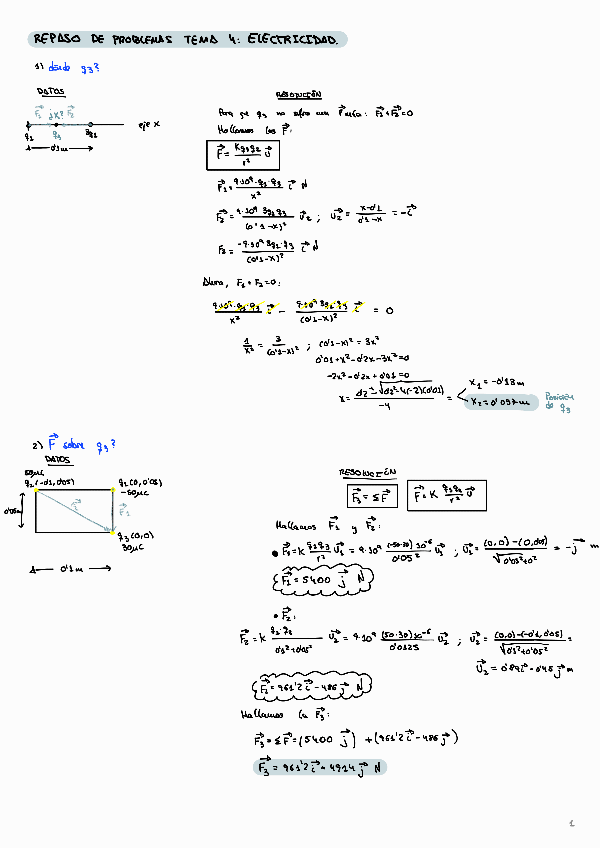 REPASO DE PROBLEMAS TEMA 4: ELECTRICIDAD.
1) dónde q3?
DATOS
F1 ¿x? F2
q1 q3 3q1 eje x
0'1m
RESOLUCIÓN
Para que q3 no sufra una fuerza: F1+F2=0
Hallamos las F:
F = K q1 q2 / r² u
F1 = 9·10⁹·q1·q3 / x² i N
F2 = 9·10⁹ 3q1·q3 / (0'1-x)² u2 ; u2 = x-0'1 / 0'1-x = -i
F2 = -9·10⁹ 3q1·q3 / (0'1-x)² i N
Ahora, F1+F2=0:
9·10⁹·q1·q3 / x² i - 9·10⁹ 3q1·q3 / (0'1-x)² i = 0
1/x² = 3/(0'1-x)² ; (0'1-x)² = 3x²
0'01+x²-0'2x-3x²=0
-2x²-0'2x+0'01=0
x = 0'2±√0'2²-4(-2)(0'01) / -4 =
x1 = -0'13m
x2 = 0'037m
Posición de q3
2) F sobre q3?
DATOS
50μC
q1 (-0'1, 0'05) q2 (0, 0'05)
-50μC
0'05m F2 F1
q3 (0,0)
30μC
0'1m
RESOLUCIÓN
F3 = ΣF F = K q1 q2 / r² u
Hallamos F1 y F2:
• F1 = K q2 q3 / r² u1 = 9·10⁹ (-50·30) 10⁻⁶ / 0'05² u1 ; u1 = (0,0)-(0,0'05) / √0'05²+0² = -j m
F1 = 5400 j N
• F2:
F2 = K q1 q3 / 0'1²+0'05² u2 = 9·10⁹ (50·30) 10⁻⁶ / 0'0125 u2 ; u2 = (0,0)-(-0'1, 0'05) / √0'1²+0'05² =
u2 = 0'89i - 0'45j m
F2 = 961'2 i - 486 j N
Hallamos la F3:
F3 = ΣF = (5400 j) + (961'2 i - 486 j)
F3 = 961'2 i + 4914 j N
1